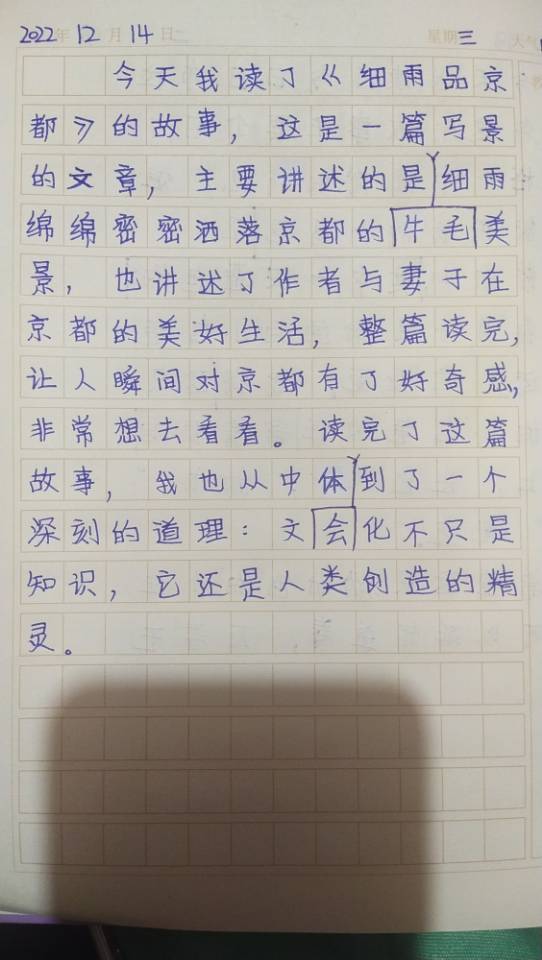 2022年12月14日 星期三 天气
今天我读了《细雨品京
都》的故事，这是一篇写景
的文章，主要讲述的是细雨
绵绵密密洒落京都的牛毛美
景，也讲述了作者与妻于在
京都的美好生活，整篇读完，
让人瞬间对京都有了好奇感，
非常想去看看。读完了这篇
故事，我也从中体到了一个
深刻的道理：文会化不只是
知识，它还是人类创造的精
灵。